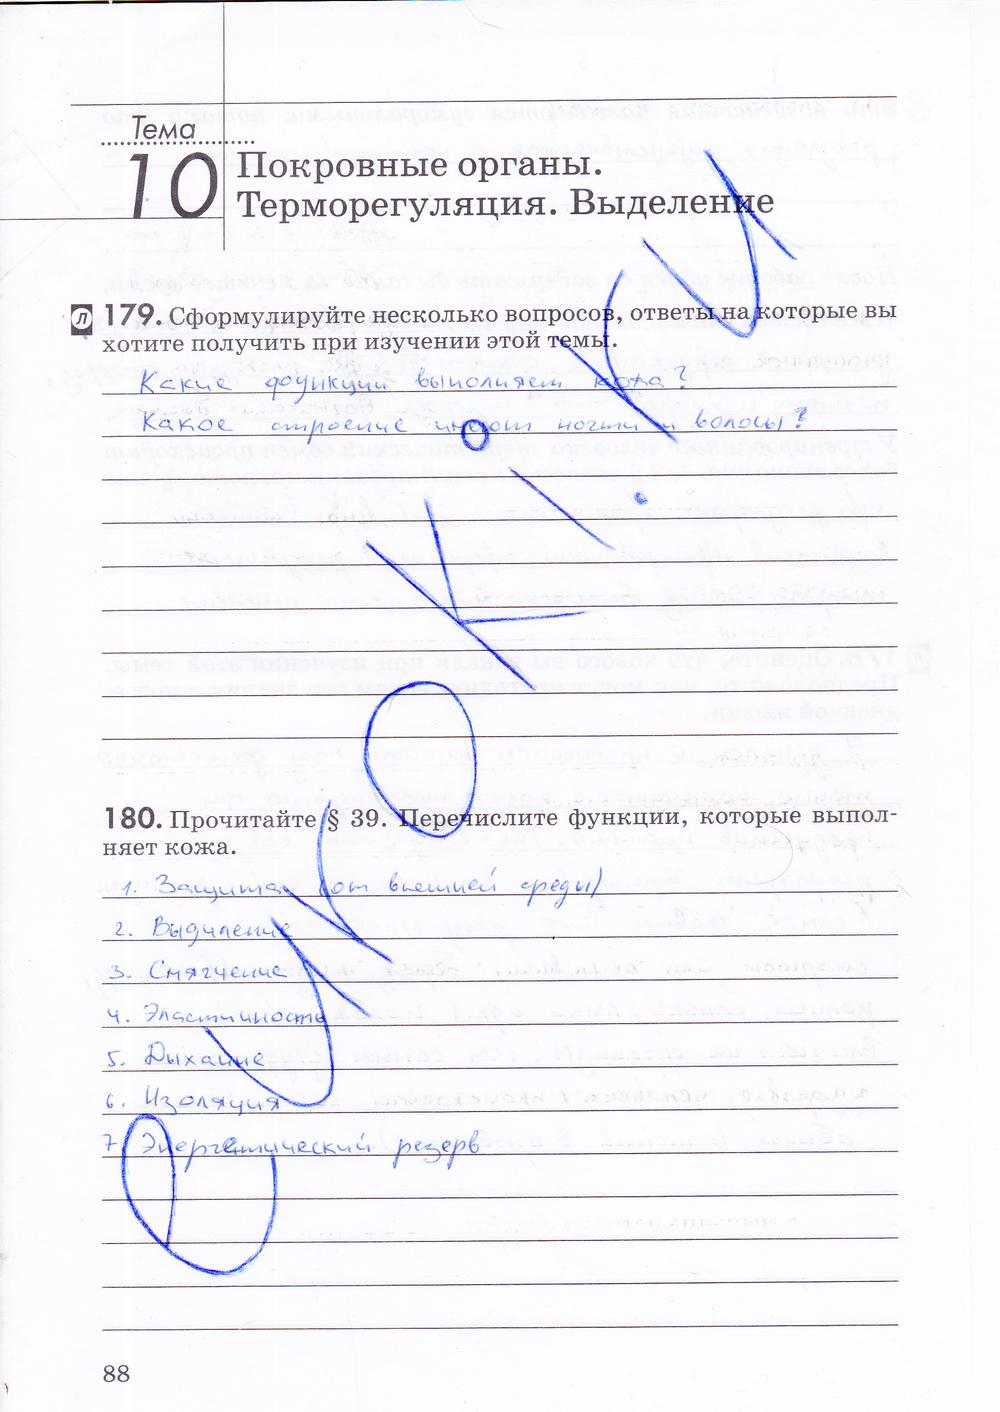 Тема
10
Покровные органы.
Терморегуляция. Выделение
Л 179. Сформулируйте несколько вопросов, ответы на которые вы
хотите получить при изучении этой темы.
Какие функции выполняет кожа?
Какое строение имеют ногти и волосы?
180. Прочитайте § 39. Перечислите функции, которые выпол-
няет кожа.
1. Защита (от внешней среды)
2. Выделение
3. Смягчение
4. Эластичность
5. Дыхание
6. Изоляция
7. Энергетический резерв
88